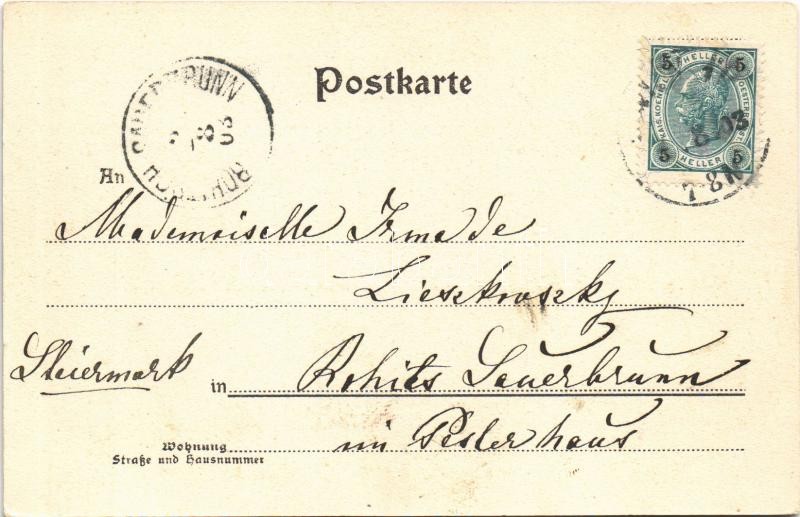 Postkarte
5 HELLER 5
KAIS. KOENIGL. OESTERR. POST
5 HELLER 5
8 03
8 N
ROHITSCH SAUERBRUNN
8 03
An
Mademoiselle Irma de
Lieszkovszky
Steiermark in Rohits Sauerbrunn
im Pesler haus
Wohnung
Straße und Hausnummer